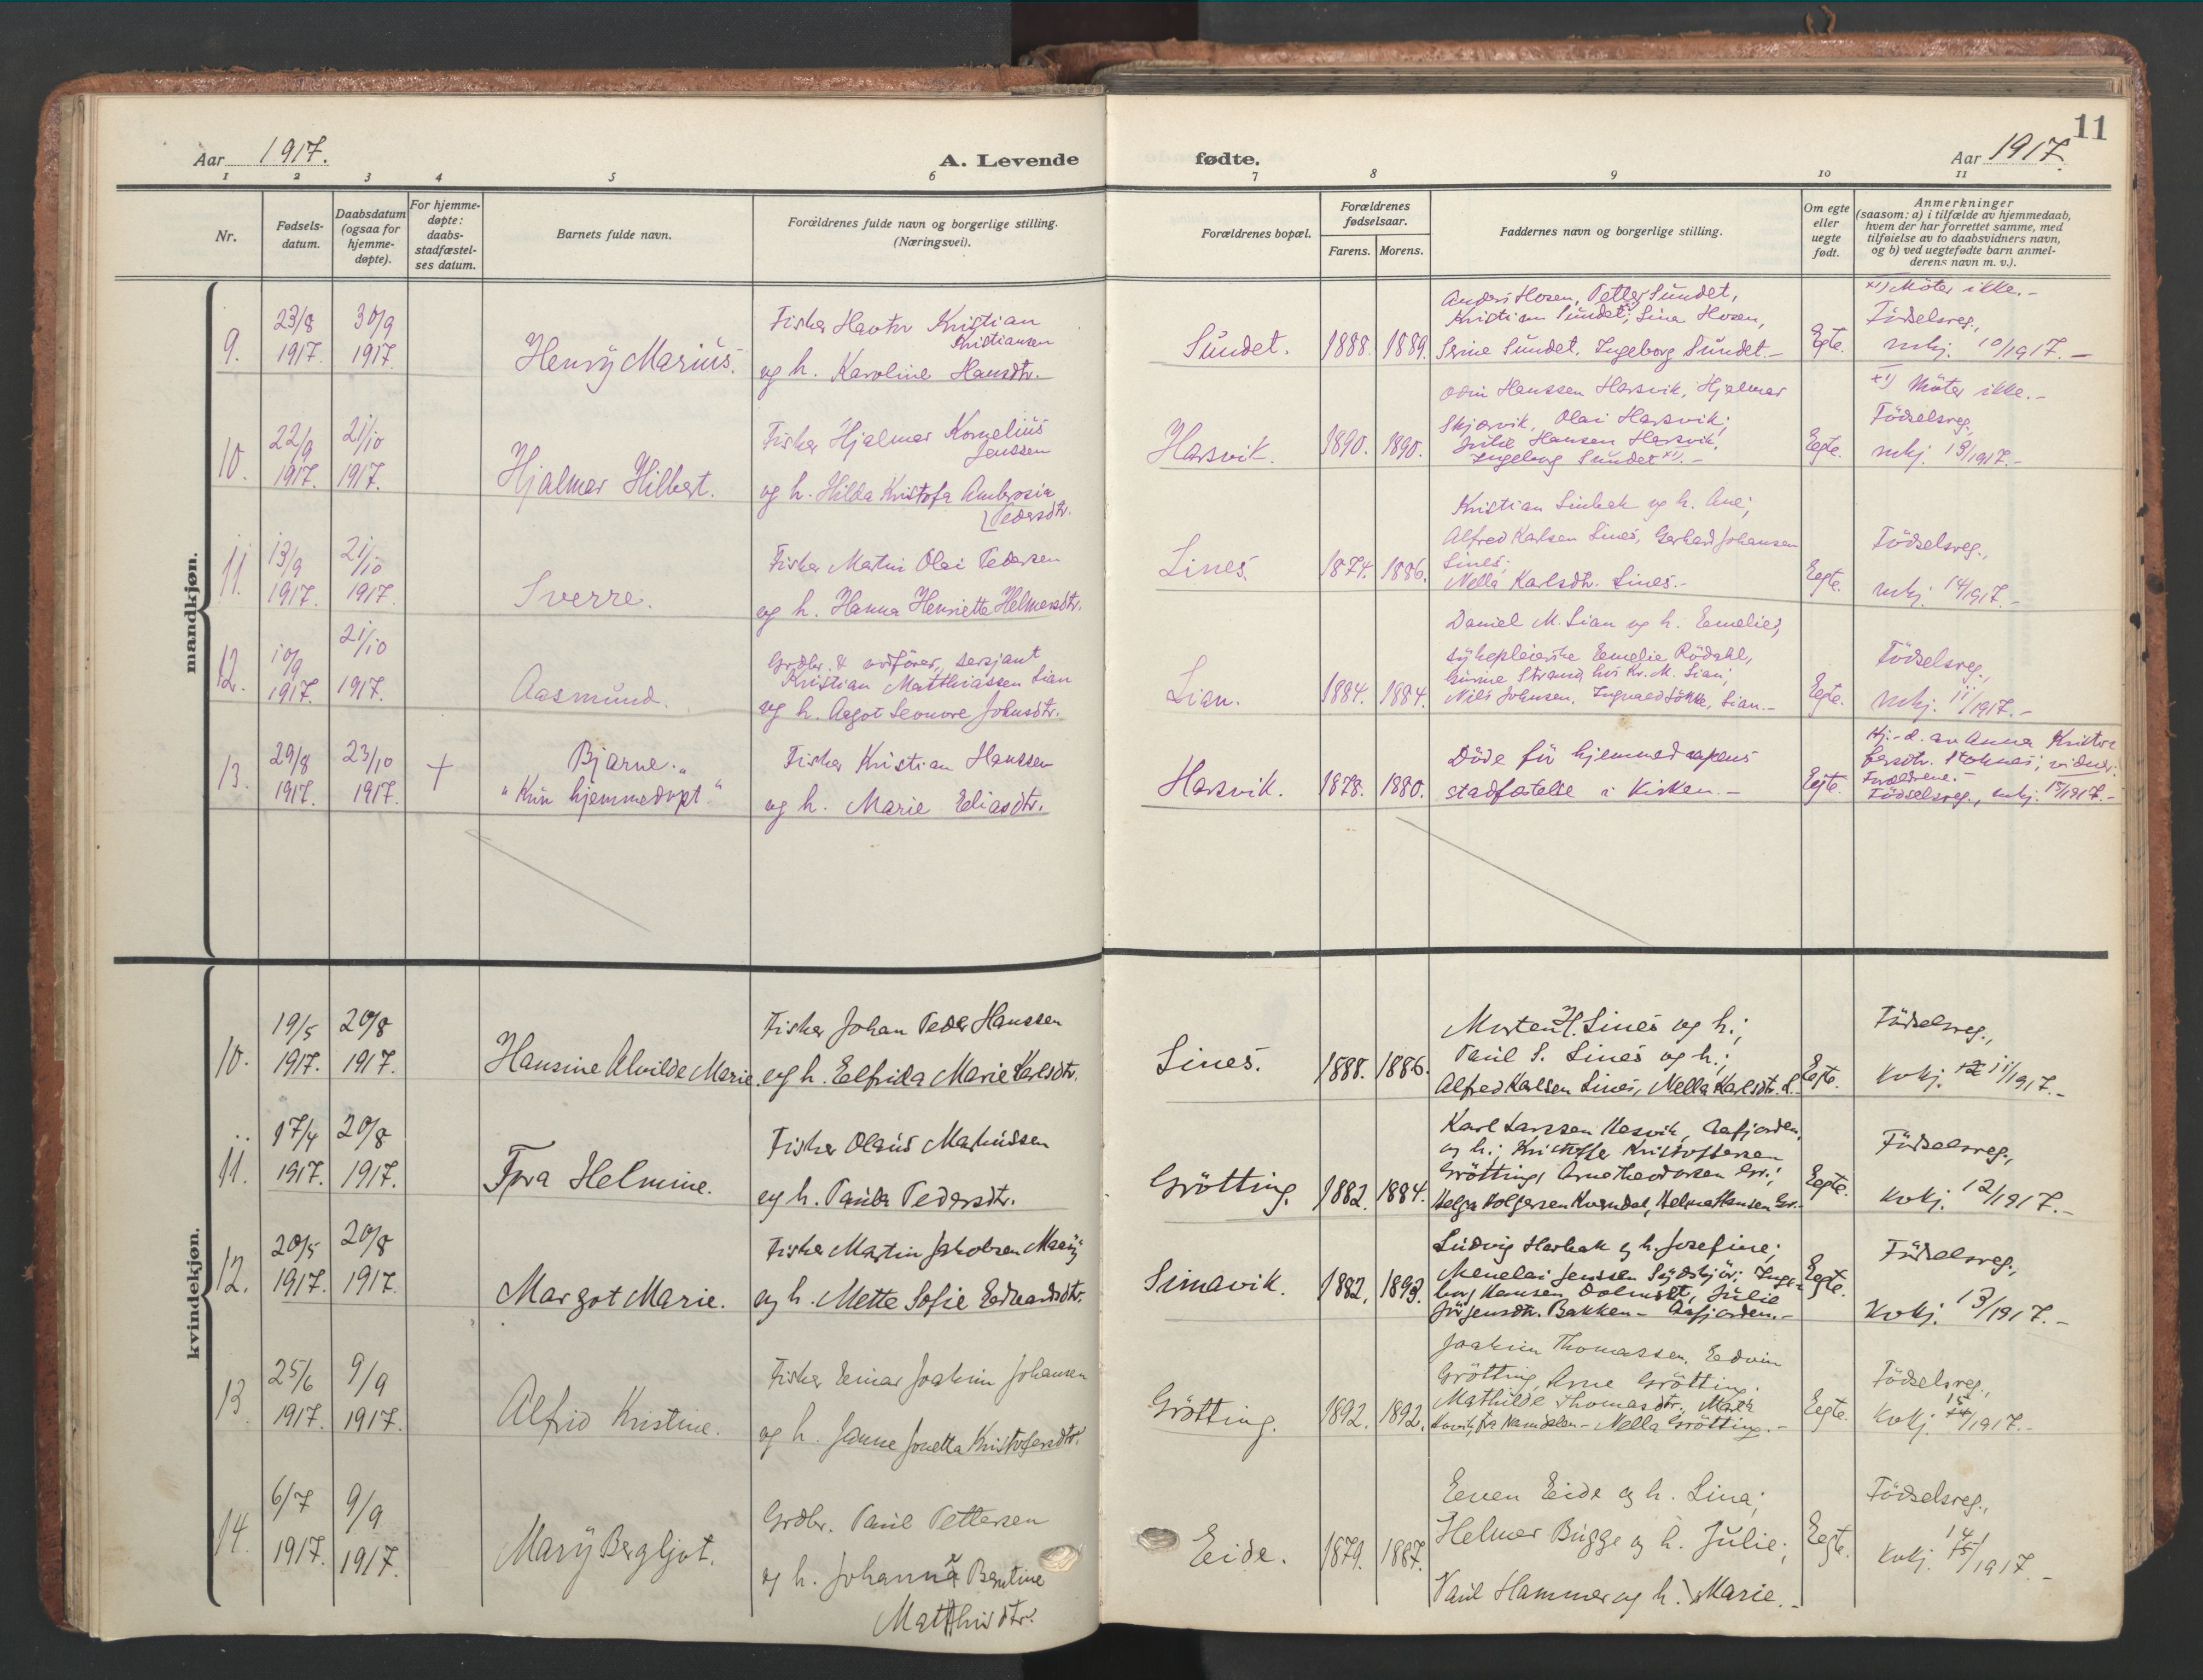 11
Aar 1917.
A. Levende
fødte.
Aar 1917.
1 2 3 4 5 6 7 8 9 10 11
Nr.
Fødsels-
datum.
Daabsdatum
(ogsaa for
hjemme-
døpte).
For hjemme-
døpte:
daabs-
stadfæstel-
ses datum.
Barnets fulde navn.
Forældrenes fulde navn og borgerlige stilling.
(Næringsvei).
Forældrenes bopæl.
Forældrenes
fødselsaar.
Farens. Morens.
Faddernes navn og borgerlige stilling.
Om egte
eller
uegte
født.
Anmerkninger
(saasom: a) i tilfælde av hjemmedaab,
hvem der har forrettet samme, med
tilføielse av to daabsvidners navn,
og b) ved uegtefødte barn anmel-
derens navn m. v.).
mandkjøn.
9.
23/8
1917.
30/9
1917
Henry Marius.
Fisker Kristian
Kristiansen
og h. Karoline Hansdtr.
Sundet.
1888. 1889.
Anders Hosen, Petter Sundet,
Kristian Sundet; Lina Hosen,
Serine Sundet, Ingeborg Sundet.-
Egte.
x1) Möter ikke.-
Födselsreg.,
mkj. 10/1917.-
10.
22/9
1917.
21/10
1917.
Hjalmar Hilbert.
Fisker Hjalmar Kornelius
Jenssen
og h. Hilda Kristofa Ambrosia
Pedersdtr.
Harsvik.
1890. 1890.
Odin Hanssen Harsvik, Hjalmar
Skjærvik, Olai Harsvik;
Julie Hansen Harsvik,
Ingeborg Sundet x1).-
Egte.
x1) Möter ikke.-
Födselsreg.
mkj. 13/1917.-
11.
13/9
1917.
21/10
1917.
Sverre.
Fisker Martin Olai Pedersen
og h. Hanna Henriette Helmersdtr.
Lines.
1874. 1886.
Kristian og h. Ane;
Alfred Karlsen Lines, Gerhard Johansen
Lines;
Nella Karlsdtr. Lines.-
Egte.
Födselsreg.,
mkj. 14/1917.-
12.
10/9
1917.
21/10
1917.
Aasmund.
Grdbr. & ordförer, sersjant
Kristian Matthiassen Lian
og h. Aagot Leonore Johnsdtr.
Lian.
1884. 1884.
Daniel M. Lian og h. Emelie;
sykepleierske Emelie Rödahl,
Gurine Strand hos Kr. M. Lian;
Nils Johnsen, Lian.-
Egte.
Födselsreg.,
mkj. 11/1917.-
13.
29/8
1917.
23/10
1917.
+
Bjarne.
"Kun hjemmedöpt."
Fisker Kristian Hanssen
og h. Marie Eliasdtr.
Harsvik.
1878. 1880.
Döde för hjemmedaapens
stadfæstelse i Kirken.-
Egte.
Hj.-d. av Anna Kristof-
fersdtr. Stoknes; vidner:
Forældrene.-
Födselsreg., mkj. 15/1917.-
kvindekjøn.
10.
19/5
1917.
20/8
1917.
Hansine Alvilde Marie.
Fisker Johan Peder Hanssen
og h. Elfrida Marie Karlsdtr.
Lines.
1888. 1886.
Morten H. Lines og h.;
Paul S. Lines og h.;
Alfred Karlsen Lines, Nella Karlsdtr. L.-
Egte.
Födselsreg.,
kvkj. 11/1917.-
11.
17/4
1917.
20/8
1917.
Tora Helmine.
Fisker Olaus Markussen
og h. Paula Pedersdtr.
Grötting.
1882. 1884.
Karl Larssen Aafjorden,
og h.; Kristoffer Kristoffersen
Grötting, Arne Theodorsen Gr.;
Helga Holgersen Kverndal, Helma Hansen Gr.-
Egte.
Födselsreg.,
kvkj. 12/1917.-
12.
20/5
1917.
20/8
1917.
Margot Marie.
Fisker Martin Jakobsen
og h. Mette Sofie Edvardsdtr.
Simavik.
1882. 1893.
Ludvig Harbak og h. Josefine;
Menelai Jenssen Sydskjör; Inge-
borg Hansen, Julie
Jörgensdtr. Bakken - Aafjorden.-
Egte.
Födselsreg.,
Kvkj. 13/1917.-
13.
25/6
1917.
9/9
1917.
Alfrid Kristine.
Fisker Einar Joakim Johansen
og h. Janne Jonetta Kristofersdtr.
Grötting.
1892. 1892.
Joakim Thomassen, Edvin
Grötting, Arne Grötting;
Mathilde Thomasdtr.,
fra Namdalen - Nella Grötting.-
Egte.
Födselsreg.,
kvkj. 15/1917.-
14.
6/7
1917.
9/9
1917.
Mary Bergljot.
Grdbr. Paul Pettersen
og h. Johanna Berntine
Matthisdtr.
Eide.
1879. 1887.
Even Eide og h. Lina;
Helmer Bugge og h. Julie;
Paul Hammer og h. Marie.-
Egte.
Födselsreg.,
kvkj. 14/1917.-